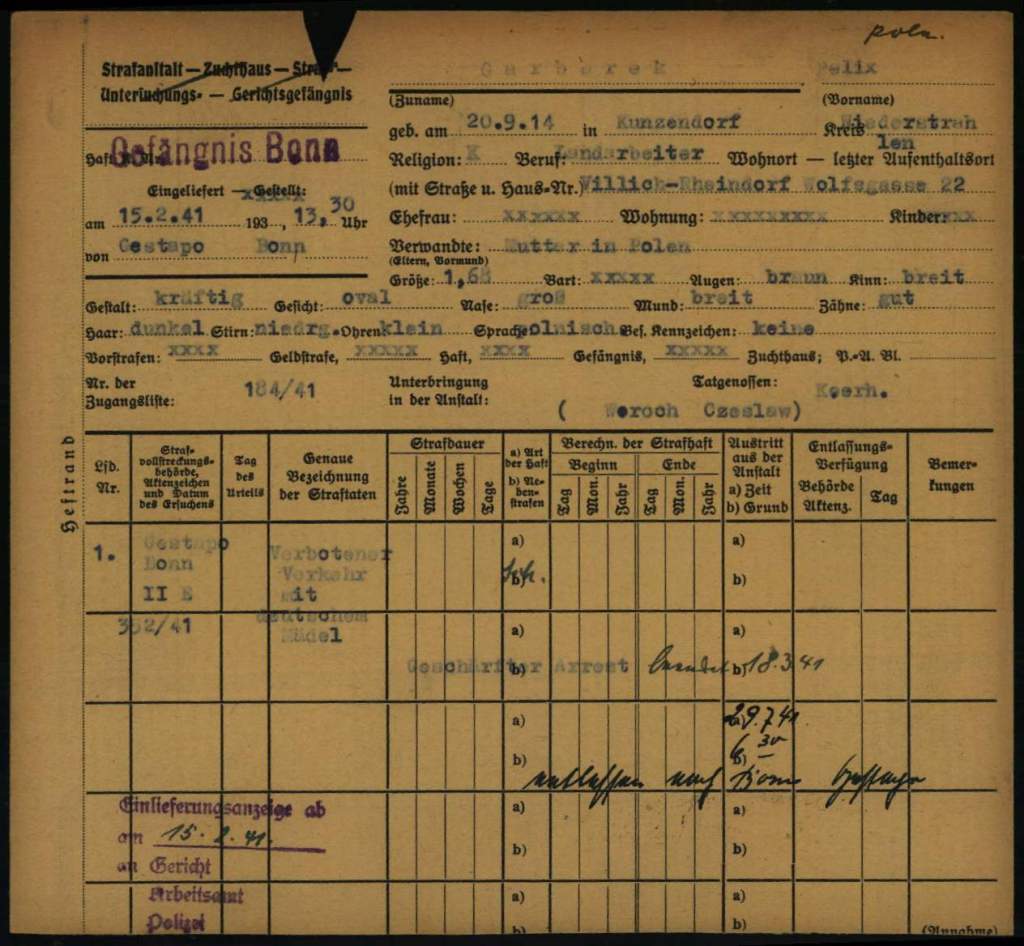 poln.
Strafanstalt — Zuchthaus — Straf- —
Untersuchungs- — Gerichtsgefängnis
Garbarek Felix
(Zuname) (Vorname)
Gefängnis Bonn
geb. am 20.9.14 in Kunzendorf Kreis Niederstrah
len
Religion: K Beruf: Landarbeiter Wohnort — letzter Aufenthaltsort
Eingeliefert — Gestellt:
xxxxx
(mit Straße u. Haus-Nr.) Villich-Rheindorf Wolfsgasse 22
am 15.2.41 193 , 13,30 Uhr
Ehefrau: xxxxxx Wohnung: xxxxxxxxx Kinder: xxx
von Gestapo Bonn
Verwandte: Mutter in Polen
(Eltern, Vormund)
Größe: 1,68 Bart: xxxxx Augen: braun Kinn: breit
Gestalt: kräftig Gesicht: oval Nase: groß Mund: breit Zähne: gut
Haar: dunkel Stirn: niedrg. Ohren klein Sprache polnisch Bes. Kennzeichen: keine
Vorstrafen: xxxx Geldstrafe, xxxxx Haft, xxxx Gefängnis, xxxxx Zuchthaus; P.-A. Bl.
Nr. der
Zugangsliste: 184/41
Unterbringung
in der Anstalt:
Tatgenossen: Koerh.
( Woroch Czeslaw)
Heftrand
Lfd.
Nr.
Straf-
vollstreckungs-
behörde,
Aktenzeichen
und Datum
des Ersuchens
Tag
des
Urteils
Genaue
Bezeichnung
der Straftaten
Strafdauer
Jahre Monate Wochen Tage
a) Art
der Haft
b) Ne-
ben-
strafen
Berechn. der Strafhaft
Beginn Ende
Tag Mon. Jahr Tag Mon. Jahr
Austritt
aus der
Anstalt
a) Zeit
b) Grund
Entlassungs-
Verfügung
Behörde
Aktenz. Tag
Bemer-
kungen
1. Gestapo
Bonn
II E
352/41
Verbotener
Verkehr
mit
deutschem
Mädel
a) a)
b) b)
a) a)
Geschärfter Arrest b) beendet b) 18.3.41
a) a) 29.7.41
b) b) 6 30
entlassen nach Bonn Gestapo
Einlieferungsanzeige ab
am 15. 2. 41.
an Gericht
a) a)
b) b)
Arbeitsamt
Polizei
a) a)
b) b)
(Annahme)